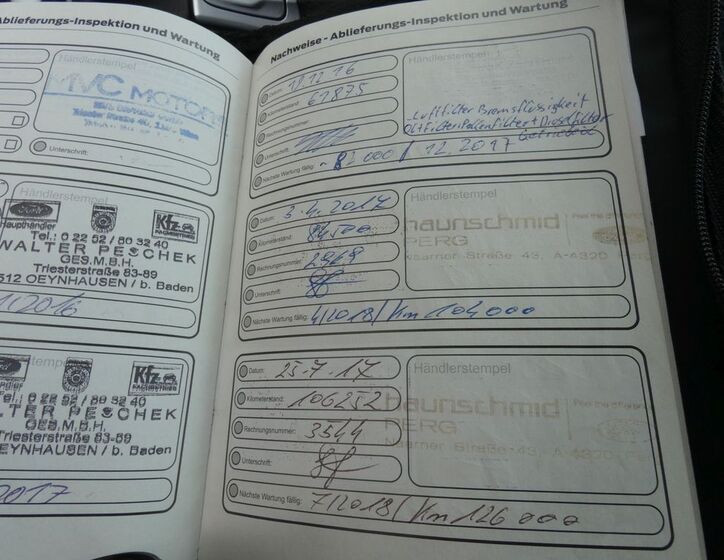 Ablieferungs-Inspektion und Wartung
Händlerstempel
MVC MOTORS
Unterschrift:
Ford
Haupthändler
Kfz
FACHBETRIEB
Tel.: 0 22 52 / 80 32 40
WALTER PESCHEK
GES.M.B.H.
Triesterstraße 83-89
2512 OEYNHAUSEN / b. Baden
/2016
Händlerstempel
Kfz
FACHBETRIEB
Tel.: 0 22 52 / 80 32 40
WALTER PESCHEK
GES.M.B.H.
Triesterstraße 83-89
OEYNHAUSEN / b. Baden
2017
Nachweise - Ablieferungs-Inspektion und Wartung
Datum:
12.16
Händlerstempel
Kilometerstand:
61875
Rechnungsnummer:
Luftfilter Bremsflüssigkeit
Ölfilter Pollenfilter +
Unterschrift:
Nächste Wartung fällig:
000 / 12.2017
Datum: 3.4.2017
Händlerstempel
Kilometerstand: 84500
Rechnungsnummer: 2969
Unterschrift:
haunschmid
PERG
Naarner Straße 43, A-4320 Perg
Nächste Wartung fällig: 4/2018/ Km 104 000
Datum: 25.7.17
Händlerstempel
Kilometerstand: 106252
Rechnungsnummer: 3544
Unterschrift:
haunschmid
PERG
Naarner Straße 43, A-4320
Nächste Wartung fällig: 7/2018/ Km 126 000